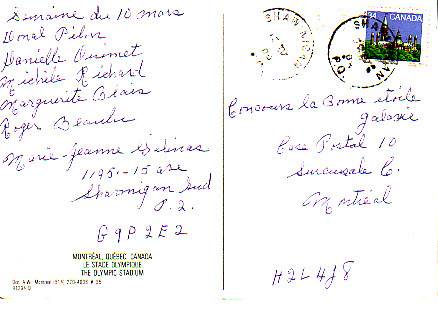 Semaine du 10 mars
Donal Pilon
Danielle Ouimet
Michèle Richard
Marguerite Blais
Roger
Marie-Jeanne
1195-15 ave
Shawinigan Sud
P.Q.
G9P2E2
MONTRÉAL, QUÉBEC, CANADA
LE STADE OLYMPIQUE,
THE OLYMPIC STADIUM
SHAWINIGAN
34 CANADA
SHAWINIGAN
Concours la Bonne étoile
galaxie
Case Postal 10
Succursale C.
Montréal
H2L 4J8